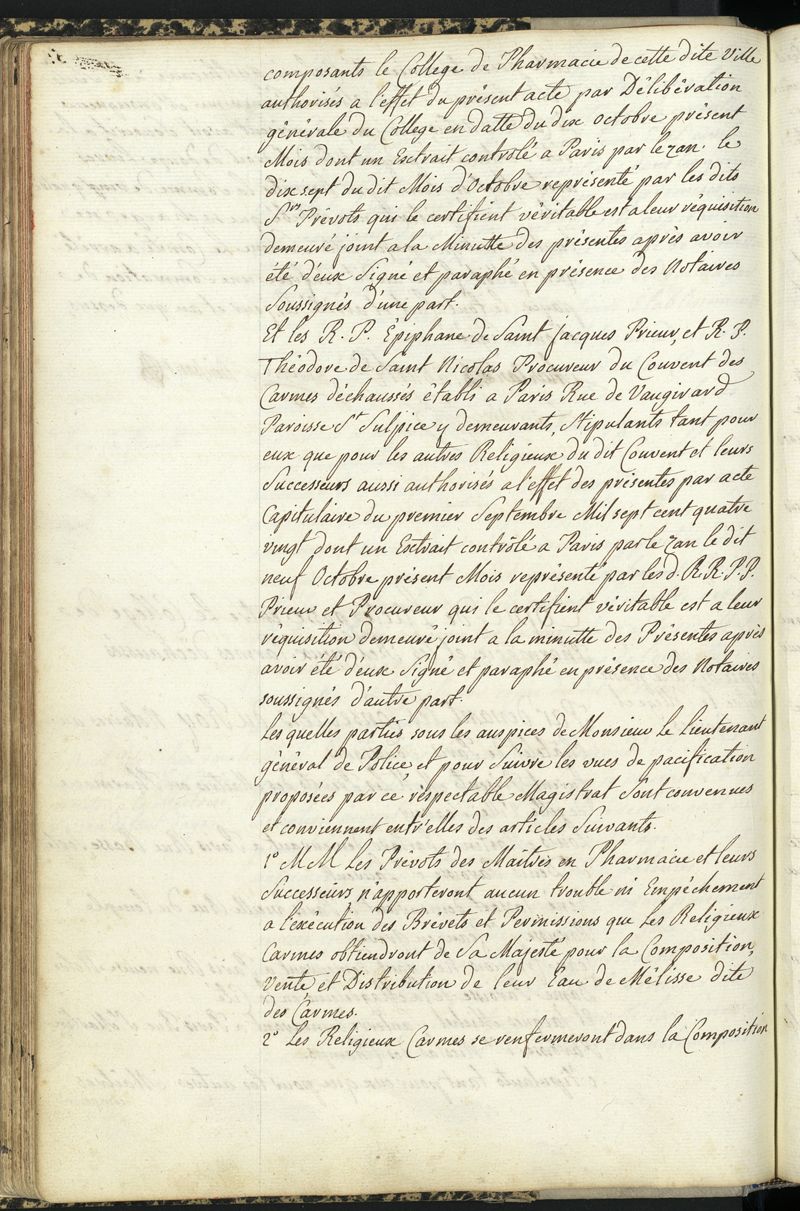 composants le College de Pharmacie de cette dite Ville
authorisés a l'effet du présent acte par Délibération
générale du College en datte du dix octobre présent
Mois dont un Extrait contrôlé a Paris par lezan. le
dix sept du dit Mois d'Octobre représenté par les dits
Srs Prévots qui le certifient véritable est a leur réquisition
demeuré joint a la Minutte des présentes après avoir
été d'eux Signé et paraphé en présence des Notaires
Soussignés d'une part.
Et les R. P. Épiphane de Saint Jacques Prieur, et R. P.
Théodore de Saint Nicolas Procureur du Couvent des
Carmes déchaussés établi a Paris Rue de Vaugirard
Paroisse St Sulpice y demeurants, Stipulants tant pour
eux que pour les autres Religieux du dit Couvent et leurs
Successeurs aussi authorisés a l'effet des présentes par acte
Capitulaire du premier Septembre Mil sept cent quatre
vingt dont un Extrait contrôlé a Paris par lezan le dit
neuf Octobre présent Mois représenté par les d. R.R. P.P.
Prieur et Procureur qui le certifient véritable est a leur
réquisition demeuré joint a la minutte des Présentes après
avoir été d'eux Signé et paraphé en présence des Notaires
soussignés d'autre part.
Les quelles parties sous les auspices de Monsieur Le Lieutenant
général de Police et pour Suivre les vues de pacification
proposées par ce respectable Magistrat Sont convenues
et conviennent entr'elles des articles Suivants.
1° M M Les Prévots des Maîtres en Pharmacie et leurs
Successeurs n'apporteront aucun trouble ni Empêchement
a l'exécution des Brévets et Permissions que Les Religieux
Carmes obtiendront de Sa Majesté pour la Composition,
Vente et Distribution de leur Eau de Mélisse dite
des Carmes.
2° Les Religieux Carmes se renfermeront dans la Composition